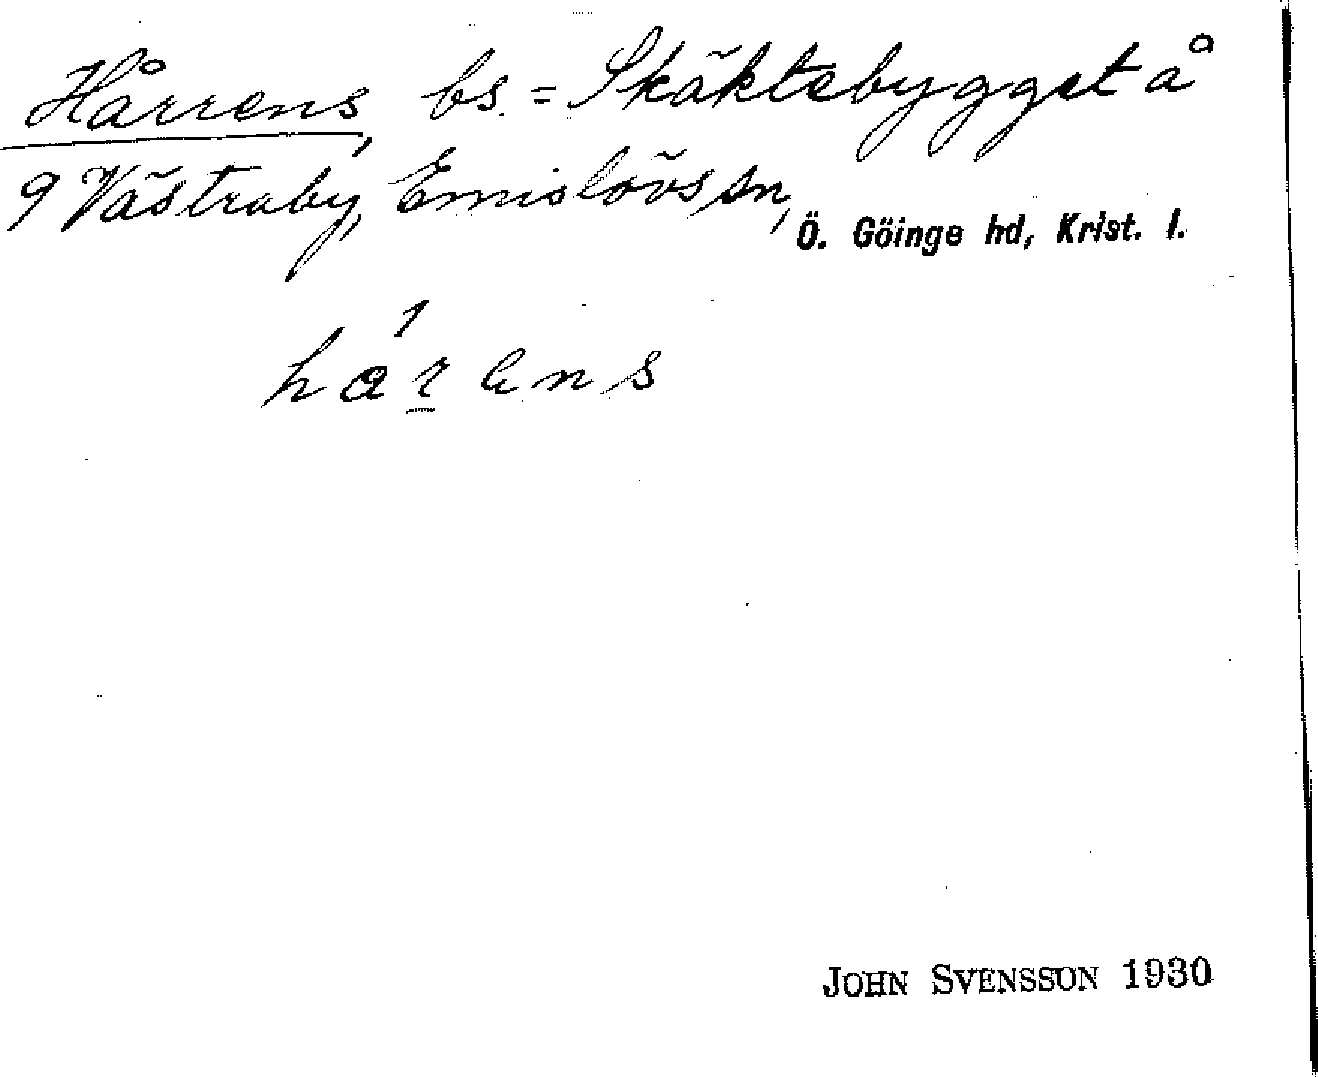 Hårrens, bs. = Skäktebygget å
9 Västraby, Emislövs sn, Ö. Göinge hd, Krist. l.
hárens
JOHN SVENSSON 1930